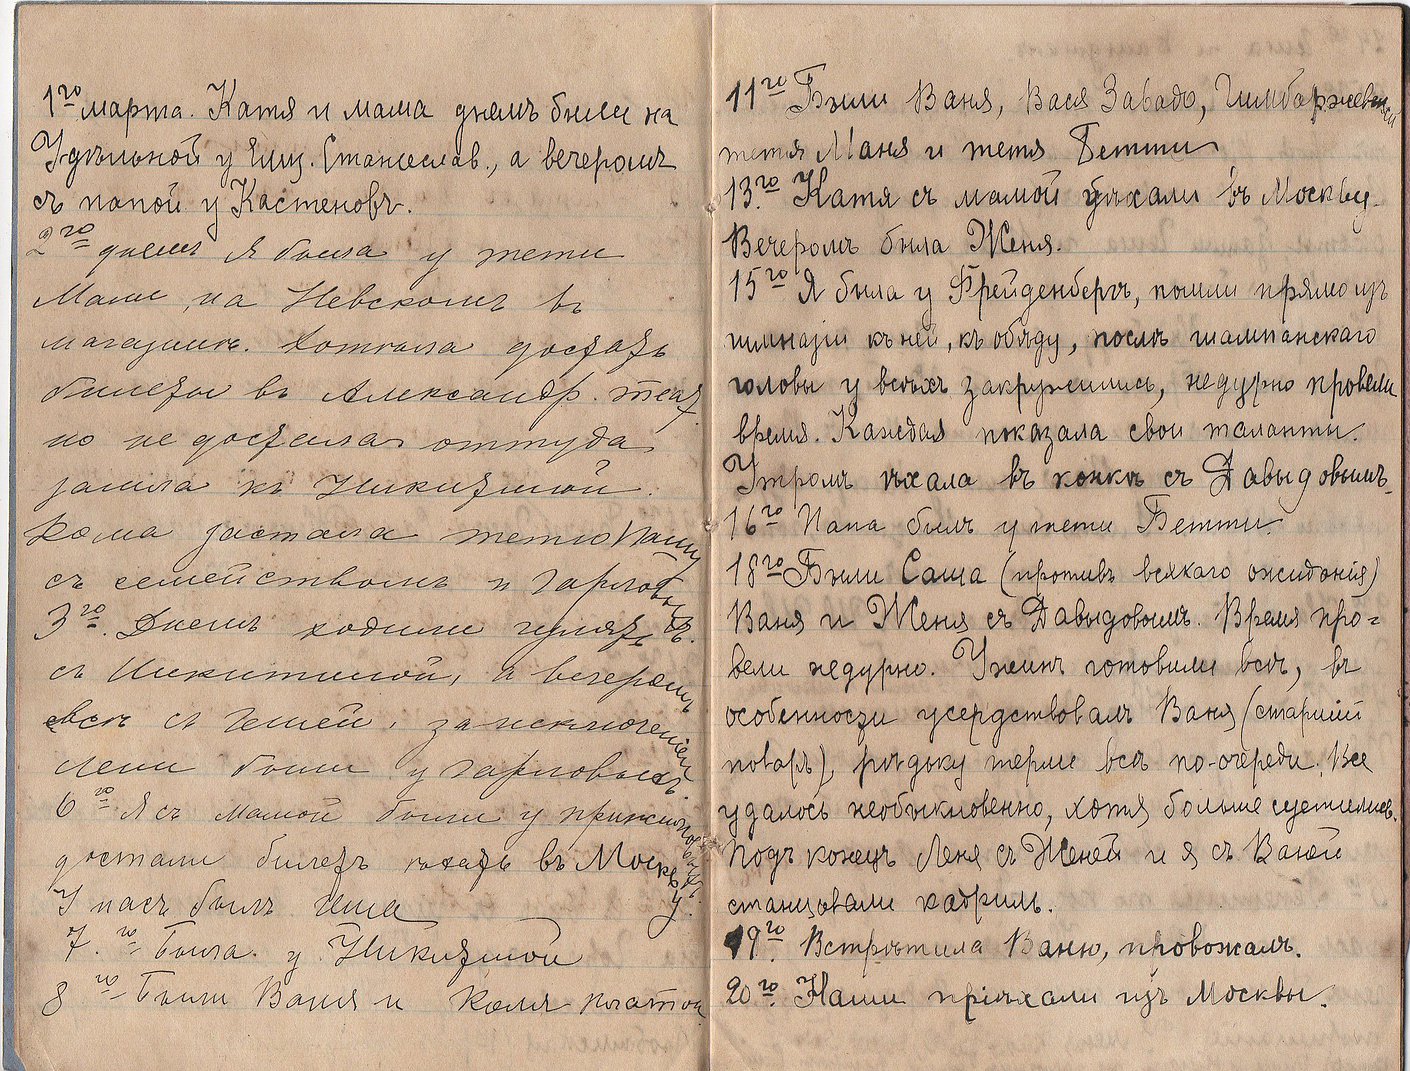 1го марта. Катя и мама днемъ были на
Удѣльной у Елиз. Станислав., а вечеромъ
съ папой у Кастеновъ.
2го днемъ я была у тети
Мани, на Невскомъ въ
магазинѣ. Хотѣла достать
билеты въ Александр. театр
но не достала оттуда
зашла къ Никитиной.
Дома застала тетю Маню
съ семействомъ и Гарловыхъ.
3го. Днемъ ходили гулять
съ Никитиной, а вечеромъ
всѣ съ Гешей, за исключеніемъ
Лени были у Гарловыхъ.
6го Я съ мамой были у
достали билетъ ѣхать въ Москву.
У насъ былъ Геша
7.го Была у Никитиной
8го Были Ваня и Коля
11го Были Ваня, Вася Завадо,
тетя Маня и тетя Бетти
13.го Катя съ мамой уѣхали въ Москву.
Вечеромъ была Женя.
15го Я была у Фрейденбергъ, пошли прямо изъ
гимназіи къ ней, къ обѣду, послѣ шампанскаго
головы у всѣхъ закружились, недурно провели
время. Каждая показала свои таланты.
Утромъ ѣхала въ конкѣ съ Давыдовымъ.
16го Папа былъ у тети Бетти.
18го Были Саша (противъ всякаго ожиданія)
Ваня и Женя съ Давыдовымъ. Время про=
вели недурно. Ужинъ готовили всѣ, въ
особенности усердствовалъ Ваня (старшій
поваръ), рѣдьку терли всѣ по-очереди. Все
удалось необыкновенно, хотя больше суетились.
Подъ конецъ Леня съ Женей и я съ Ваней
станцовали кадриль.
19го. Встрѣтила Ваню, провожалъ.
20го. Наши пріѣхали изъ Москвы.